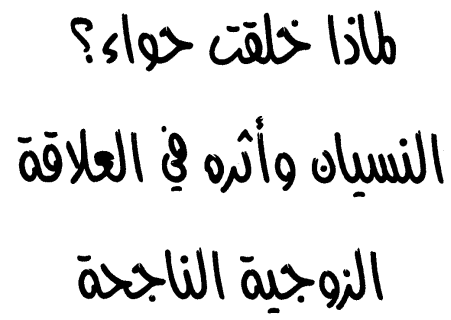 لماذا خلقت حواء؟
النسيان وأثره في العلاقة
الزوجية الناجحة